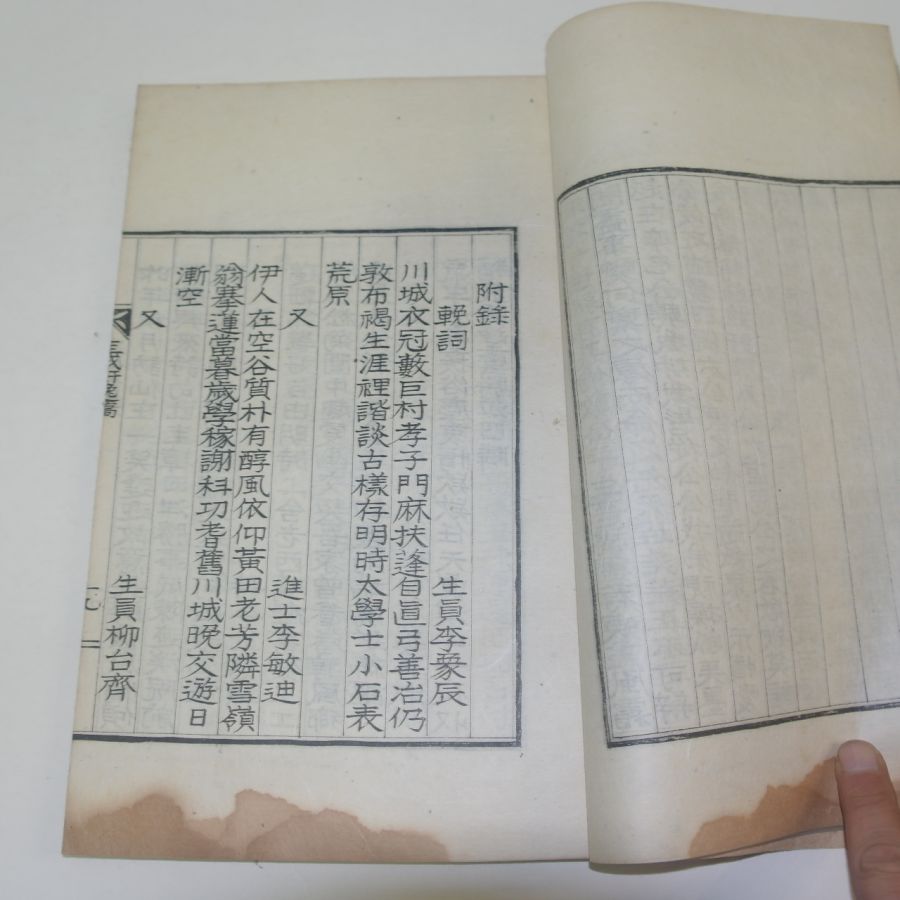 附錄
輓詞
生員李粲辰
川城衣冠藪巨村孝子門麻扶逢自直弓善冶仍
敦布褐生涯裡諧談古樣存明時太學士小石表
荒原
又
進士李敏迪
伊人在空谷質朴有醇風依仰黃田老芳隣雪嶺
翁搴蓮當暮歲學稼謝科功耆舊川城晚交遊日
漸空
又
生員柳台齊